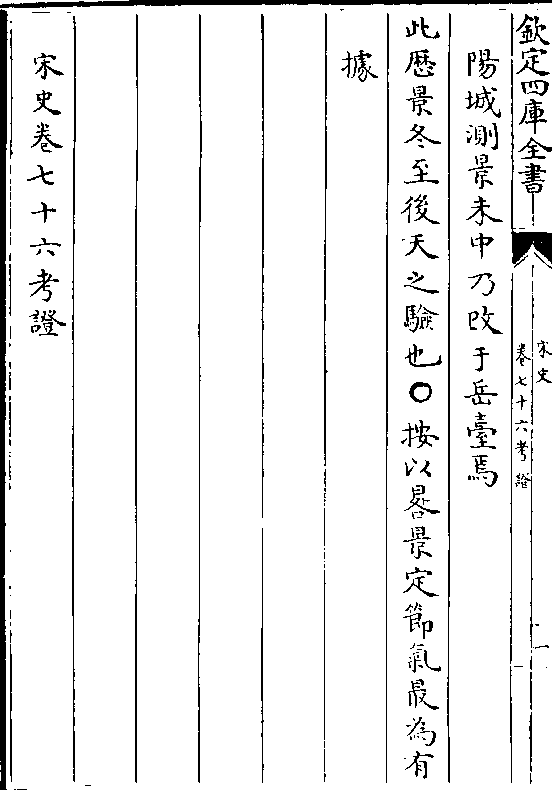 欽定四庫全書
宋史
卷七十六考證
一
陽城測景未中乃改于岳臺焉
此歴景冬至後天之驗也〇按以晷景定節氣最為有
據
宋史卷七十六考證